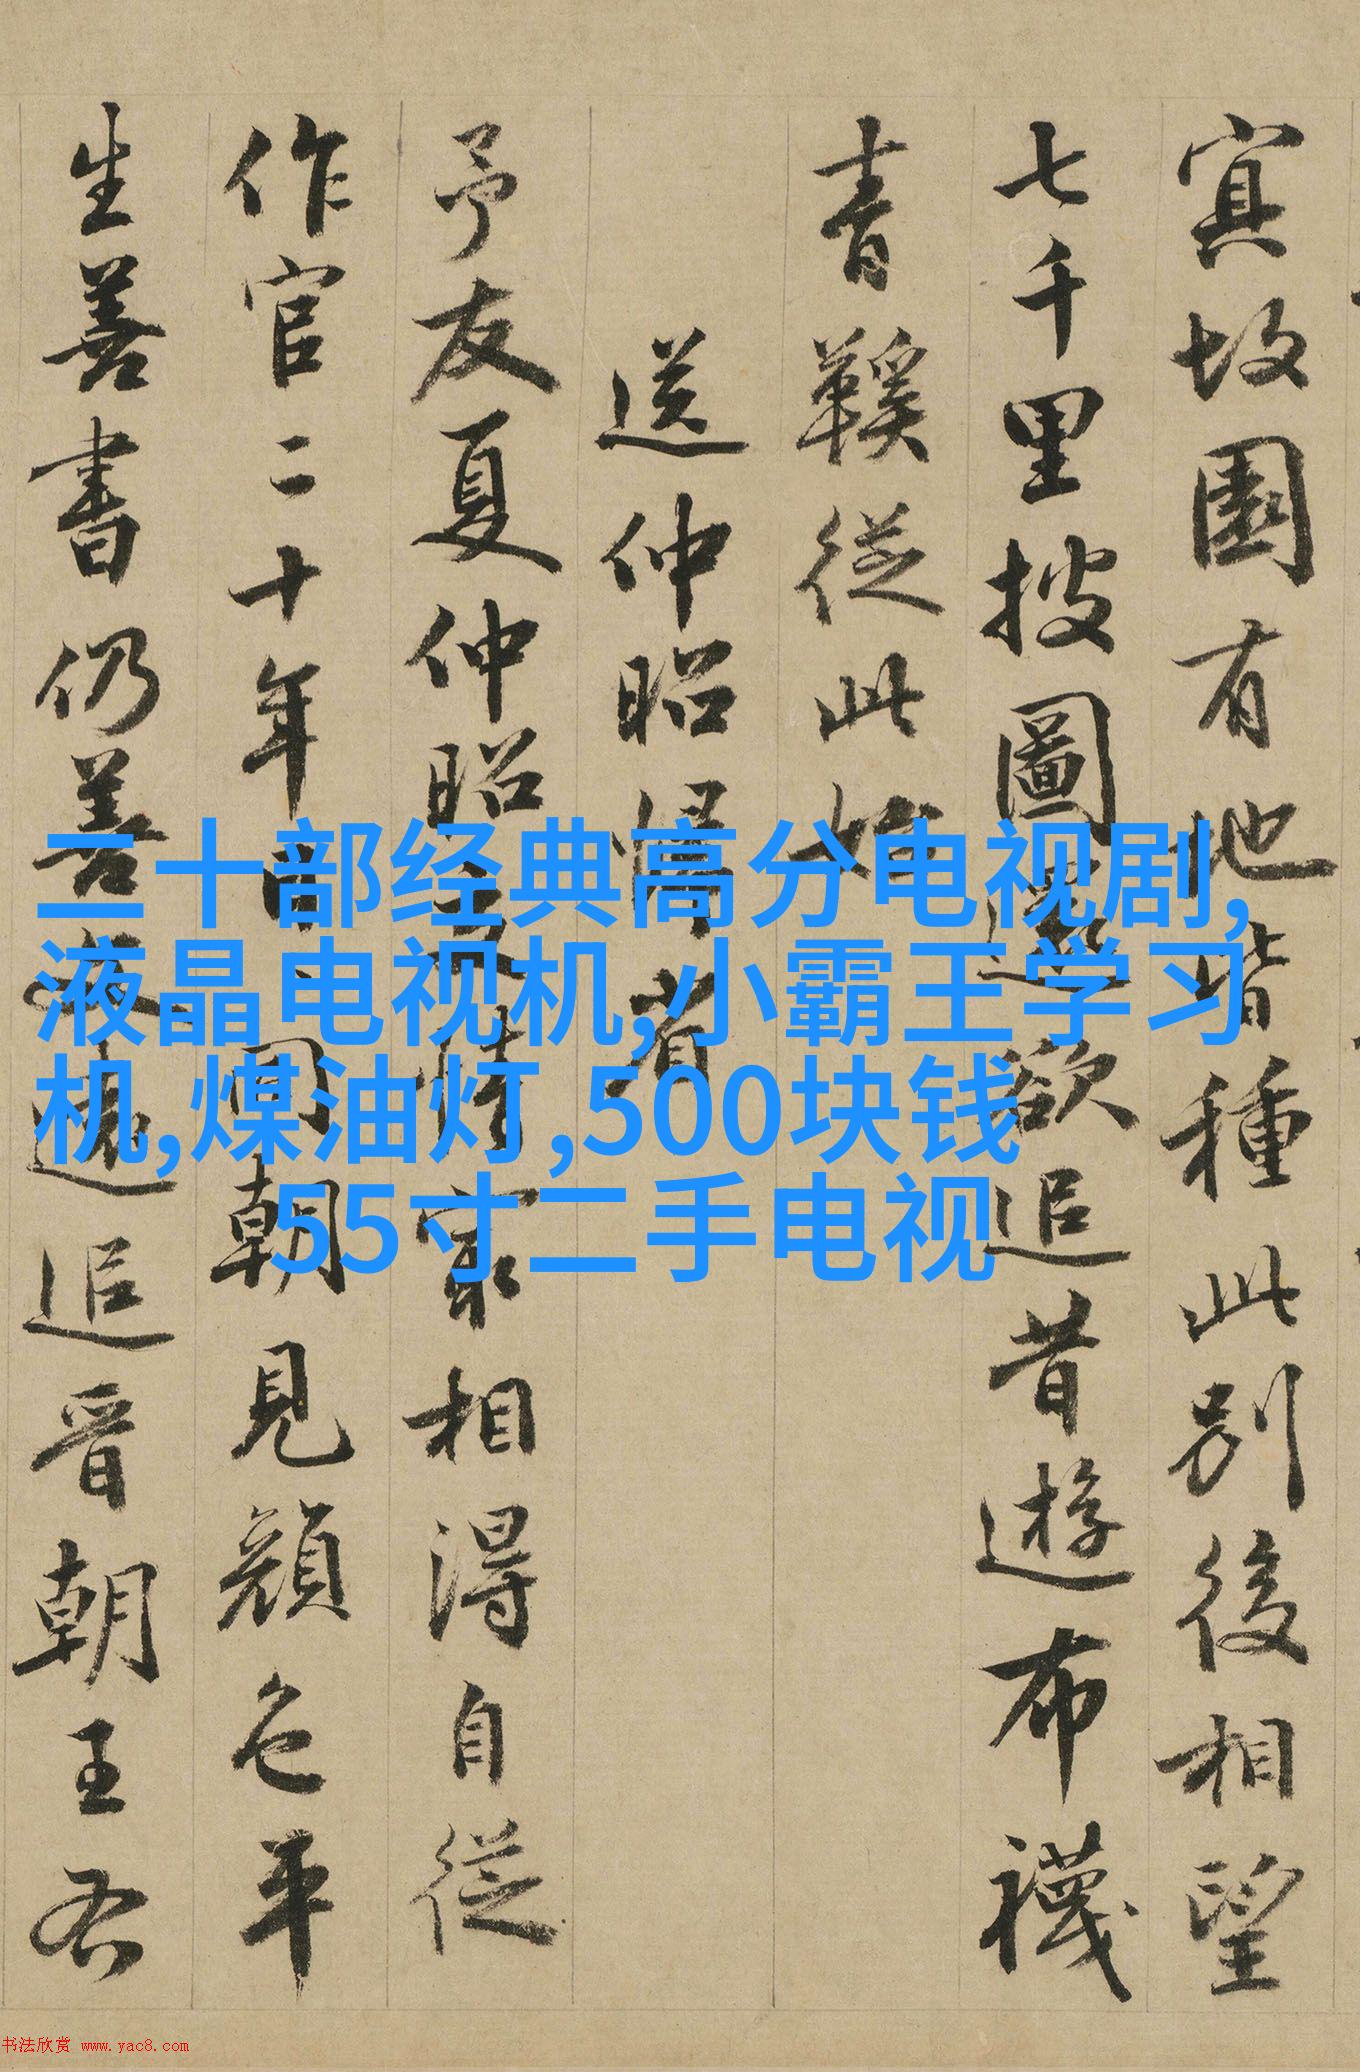 故園有地皆種此別後相望
七千里披圖還欲追昔遊布襪
青鞵從此始
送仲昭歸省
予友夏仲昭交情冣相得自從
作官二十年日日同朝見顏色平
生善書仍善遠追晉朝王右
二十部经典高分电视剧,
液晶电视机,小霸王学习
机,煤油灯,500块钱
55寸二手电视
书法欣赏 www.yac8.com